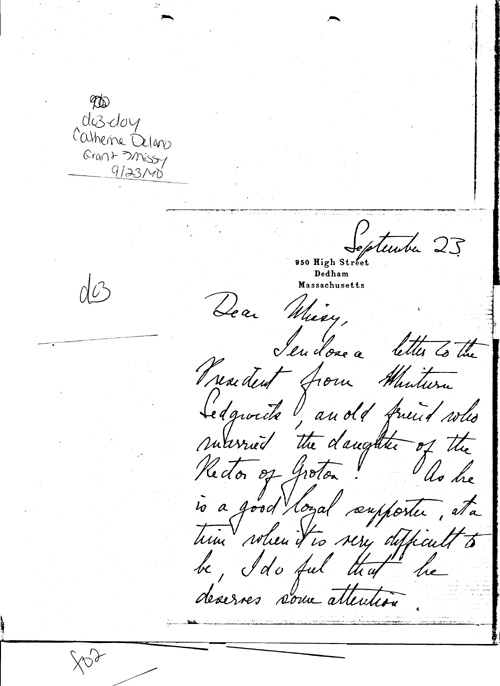 do3-doy
Catherine Delano
Grant > Missy
9/23/40
do3
September 23.
950 High Street
Dedham
Massachusetts
Dear Missy,
I enclose a letter to the
President from
Sedgwick, an old friend who
married the daughter of the
Rector of Groton. As he
is a good loyal supporter, at a
time when it is very difficult to
be, I do feel that he
deserves some attention.
fo2